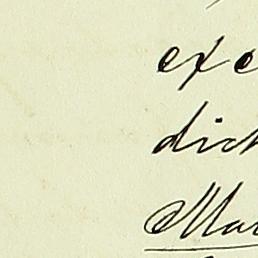 exc
dich
Mar